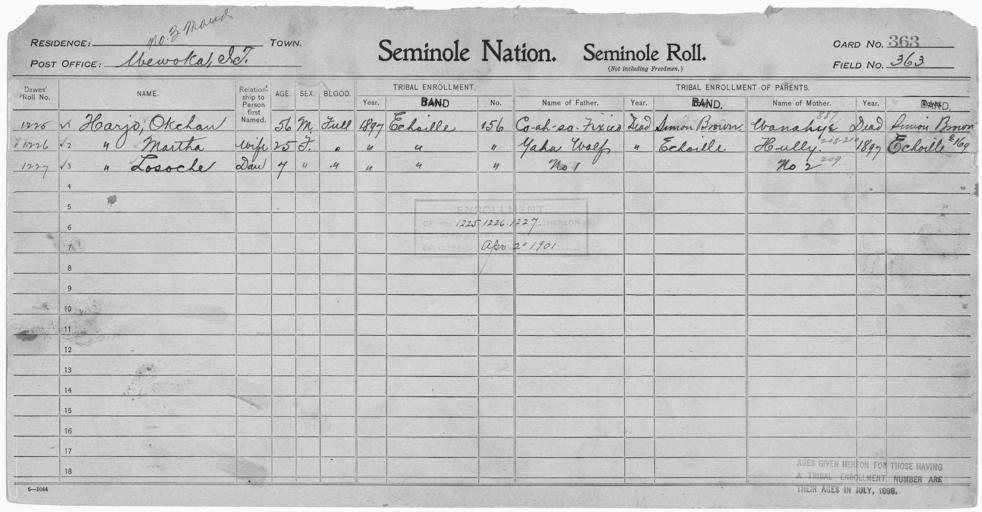 No. 2 Maud
RESIDENCE: TOWN.
POST OFFICE: Wewoka, I.T.
Seminole Nation. Seminole Roll.
(Not including Freedmen.)
CARD NO. 363
FIELD NO. 363
Dawes' Roll No. NAME. Relationship to Person first Named. AGE. SEX. BLOOD. TRIBAL ENROLLMENT. TRIBAL ENROLLMENT OF PARENTS.
Year. BAND No. Name of Father. Year. BAND. Name of Mother. Year. BAND.
887
1225 √1 Harjo, Okchan 56 M. Full 1897 Echoille 156 Co-ah-so-Fixico Dead Simon Brown Wanahye Dead Simon Brown
√1226 √2 " Martha Wife 25 F. " " " " Yaha Wolf " Echoille Hully 1897 Echoille 169
1227 √3 " Losoche Dau 7 " " " " " No 1 No 2 209
4
5
ENROLLMENT
6 1225 1226 1227. HEREON
7 Apr 2" 1901
8
9
10
11
12
13
14
15
16
17
18
AGES GIVEN HEREON FOR THOSE HAVING
A TRIBAL ENROLLMENT NUMBER ARE
THEIR AGES IN JULY, 1898.
6—2044